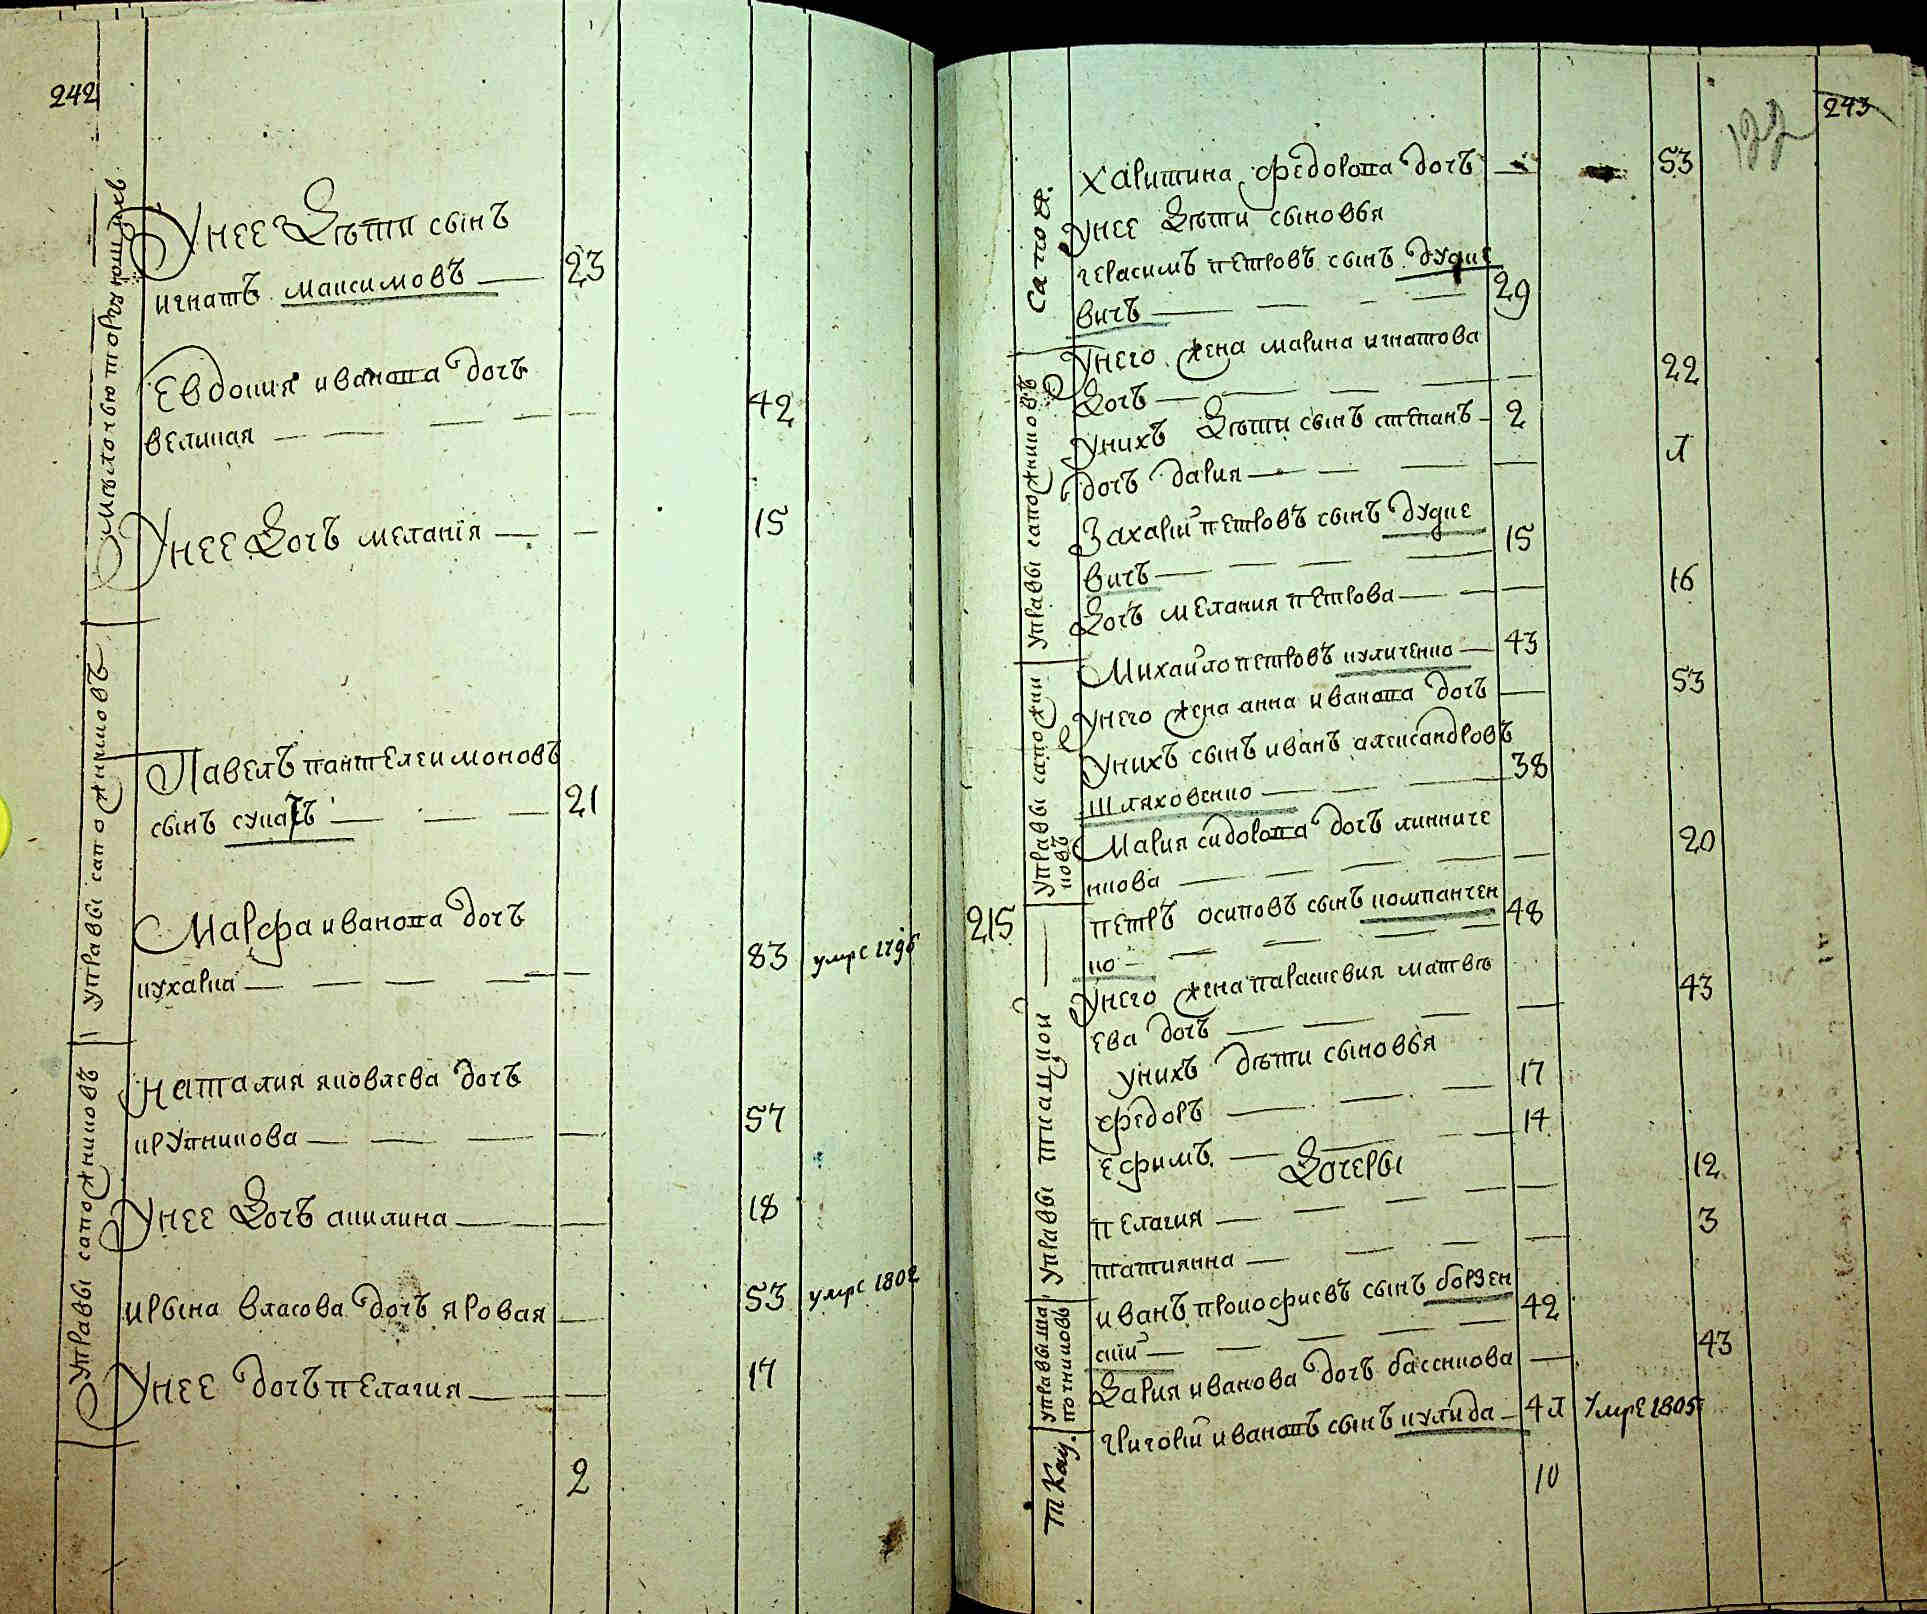 242
мѣлочью торгующихъ
У нее дѣти сынъ
игнатъ максимовъ — 23
Евдокия иванова дочь
великая — — 42
У нее дочь мелания — — 15
Управы сапожниковъ
Павелъ пантелеимоновъ
сынъ сукачъ — 21
Марфа иванова дочь
кухарка — — 83 умре 1796
Управы сапожниковъ
Наталия яковлева дочь
крупникова — — 57
У нее дочь акилина — — 18
ирина власова дочь яровая — 53 умре 1802
У нее дочь пелагия — — 17
2
243
122
Сапож.
Харитина федорова дочь — 53
У нее дѣти сыновья
герасимъ петровъ сынъ дудке
вичъ — 29
Управы сапожниковъ
У него жена марина игнатова
дочь — — 22
У нихъ дѣти сынъ степанъ — 2
дочь дария — — Л
Захарий петровъ сынъ дудке
вичъ — 15
дочь мелания петрова — — 16
Управы сапожни
ковъ
Михайло петровъ куличенко — 43
У него жена анна иванова дочь — 53
У нихъ сынъ иванъ александровъ
шляховенко — 38
Мария сидорова дочь линниче
нкова — — 20
215
Управы ткацкой
петръ осиповъ сынъ компанчен
ко — 48
У него жена параскевия матвѣ
ева дочь — — 43
У нихъ дѣти сыновья
федоръ — 17
ефимъ — 14
дочери
пелагия — — 12
татиянна — — 3
управы ша
почниковъ
иванъ прокофиевъ сынъ борзен
кий — 42
дария иванова дочь — 43
Ткац.
григорий ивановъ сынъ кулида — 4Л умре 1805
10